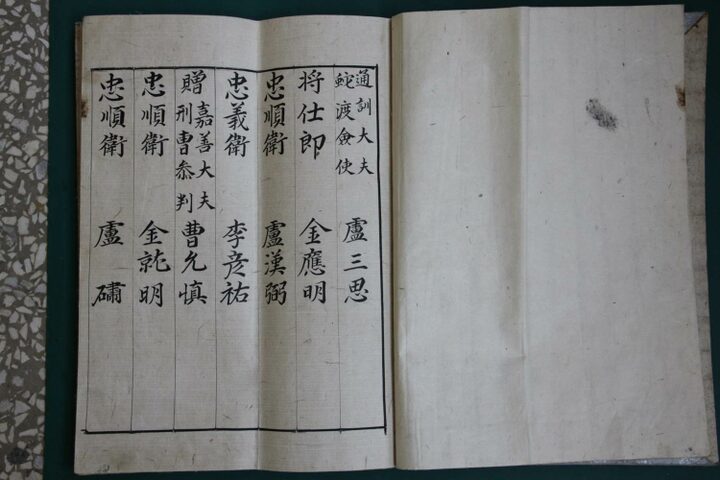 通訓大夫
蛇渡僉使 盧三思
将仕郎 金應明
忠順衛 盧漢弼
忠義衛 李彦祐
贈嘉善大夫
刑曹叅判 曹允愼
忠順衛 金就明
忠順衛 盧礦